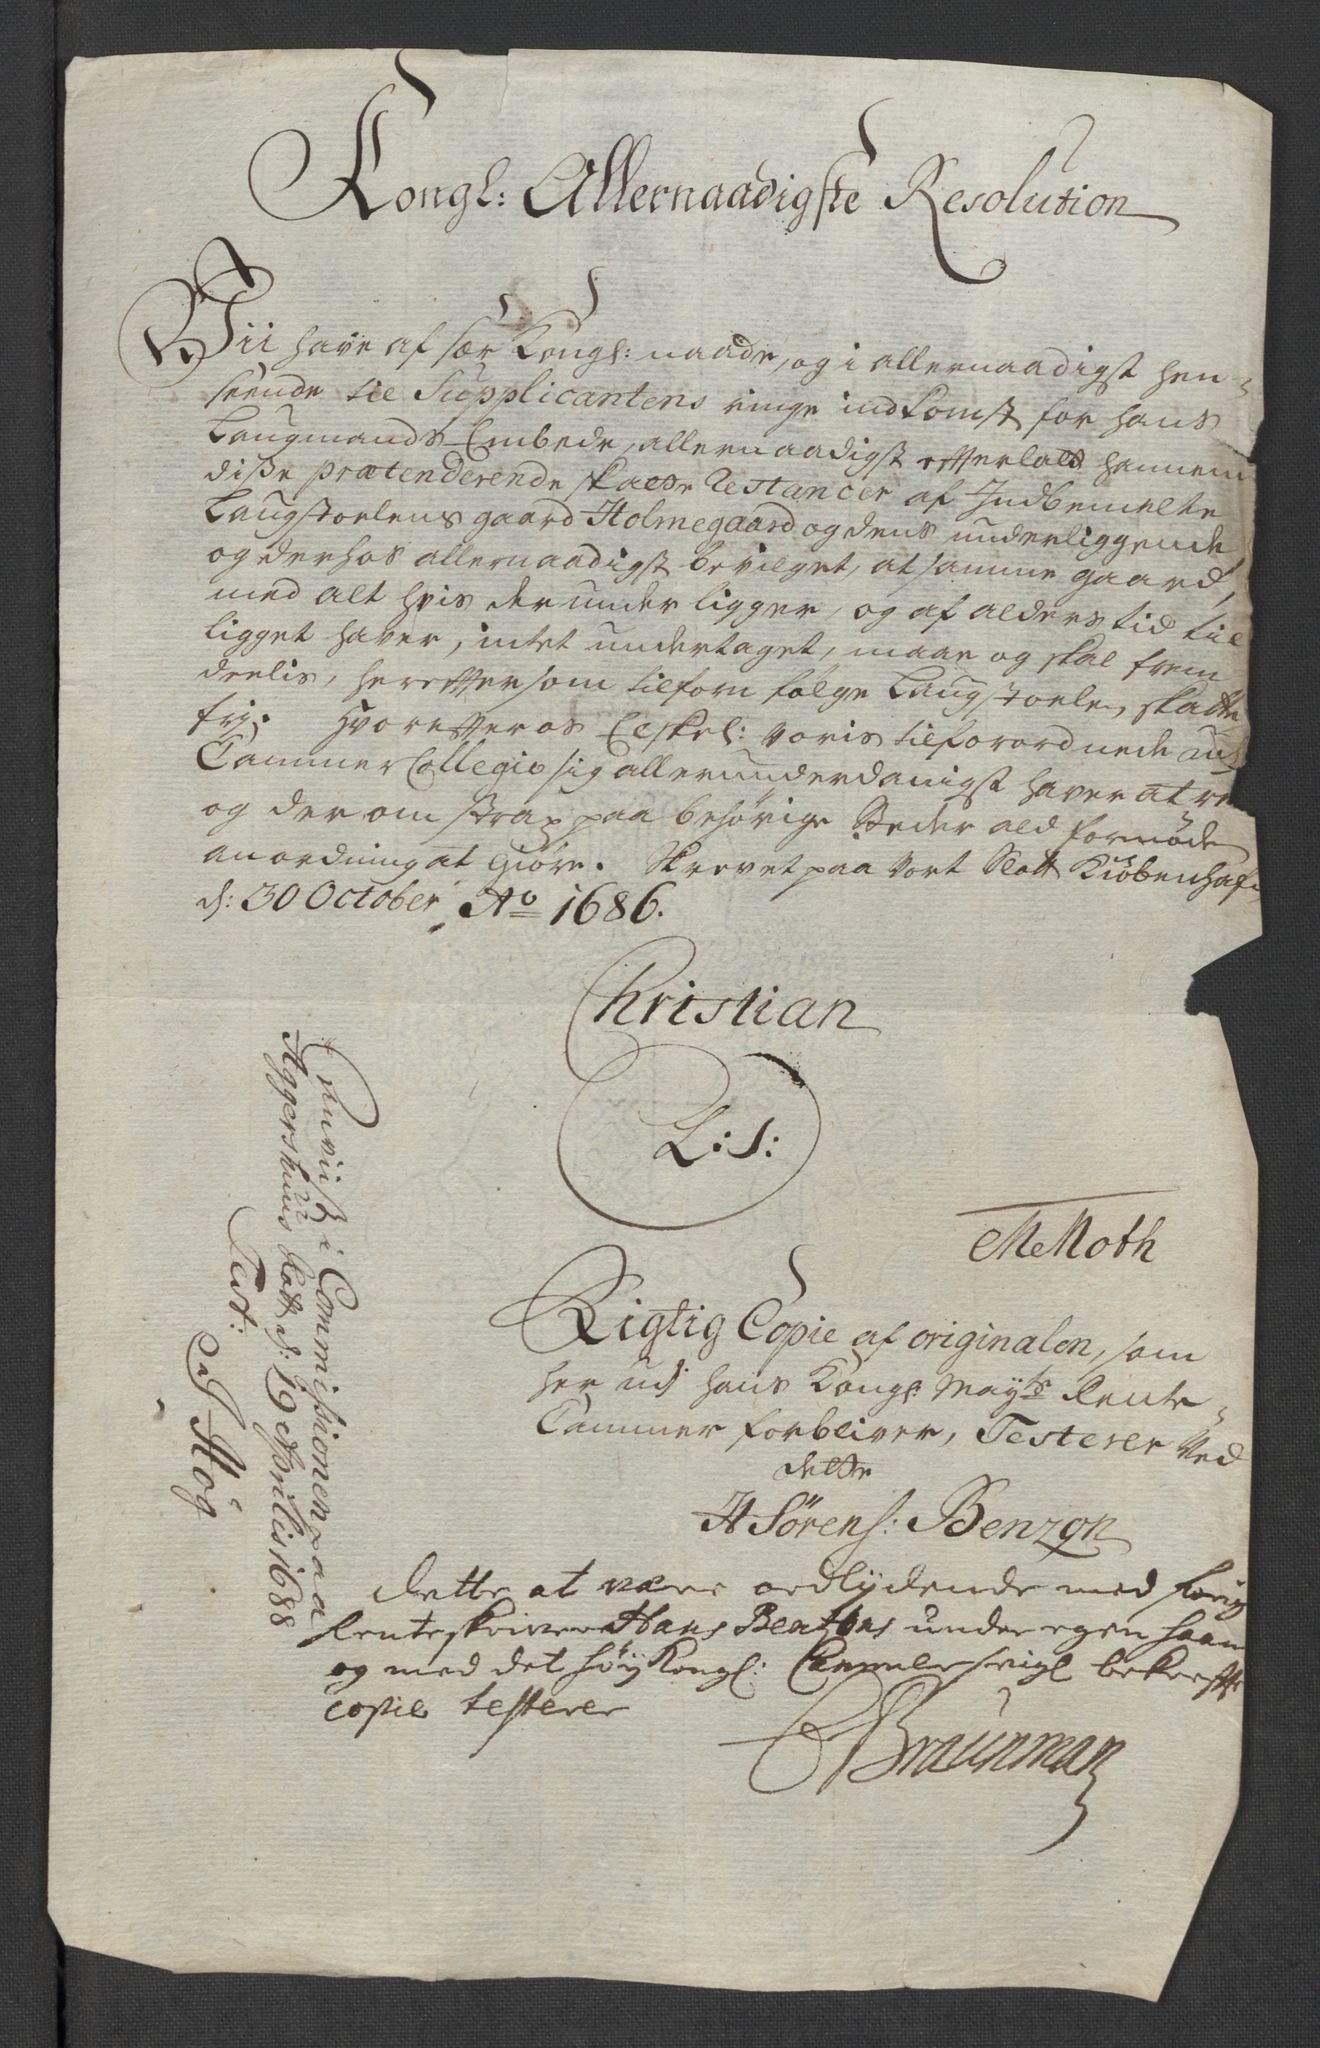 Kongl: Allernaadigste Resolution
Vii have af sær Kongl: naade, og i allernaadigst hen-
seende til Supplicantens ringe indkomst for hans
Laugmands Embede, allernaadigst efterladt hannem
diße prætenderende skatte Restancer af Indbemelte
Laugstoelens gaard Holmegaard og dens underliggende
og derhos allernaadigst bevilget, at samme gaard,
med alt hvis der under ligger, og af alders tid til
ligget haver, intet undertaget, maae og skal frem
deelis, herefter som tilforn følge Laugstoelen, skatte
frj. Hvorefter os Elskel: Voris tilforordnede udj
Cammer Collegio sig allerunderdanigst haver at re
og der om strax paa behørige Steder ald fornøde
anordning at giøre. Skrevet paa Vort Slott Kiøbenhafn
d: 30 October Ao 1686.
Christian
L:S:
M Moth
Rigtig Copie af originalen, som
her udj hans Kongl: Mayts Rente-
Cammer forbliver, Testerer Ved
dette
H Sørens: Benzon
Dette at være ordlydende med forig
Renteskriver Hans Bentzons under egen haan
og med det höy Kongl: Cammer seigl bekrefte
copie testerer
Braunman
Anviist i Commissionen paa
Aggershuus Slott d: 19 Aprilis 1688
Test:
J Høg